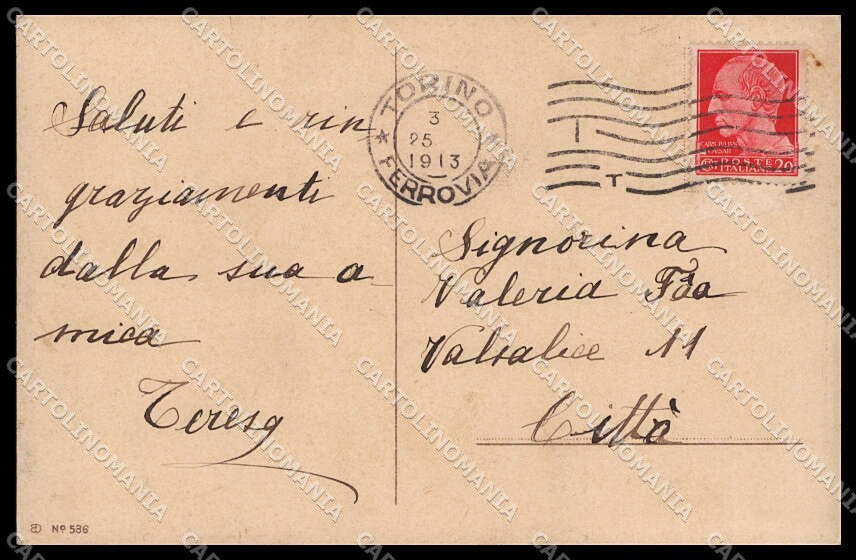 Saluti e rin
graziamenti
dalla sua a
mica
Teresa
TORINO
3
25
1913
FERROVIA
T
POSTE
ITALIANE
20
Signorina
Valeria
Valsalice 11
Città
Nº 586
CARTOLINOMANIA